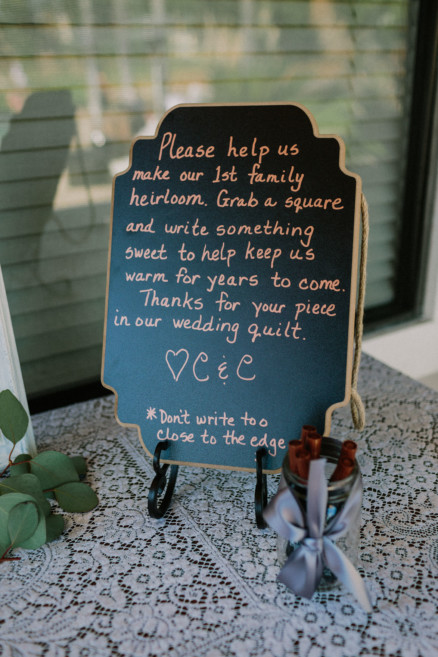 Please help us
make our 1st family
heirloom. Grab a square
and write something
sweet to help keep us
warm for years to come.
Thanks for your piece
in our wedding quilt.
♡ C & C
*Don't write too
close to the edge